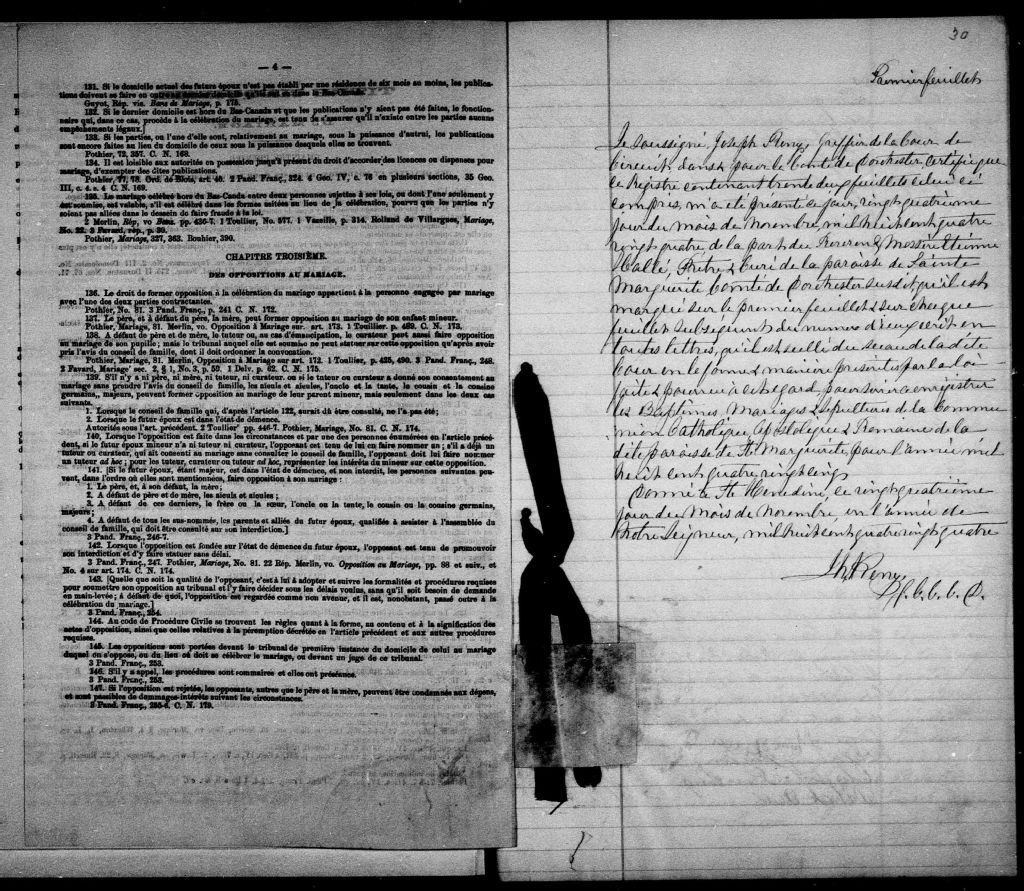 — 4 —
131. Si le domicile actuel des futurs époux n'est pas établi par une résidence de six mois au moins, les publica-
tions doivent se faire en outre au
Guyot, Rép. vis. Bans de Mariage, p. 175.
132. Si le dernier domicile est hors du Bas-Canada et que les publications n'y aient pas été faites, le fonction-
naire qui, dans ce cas, procède à la célébration du mariage, est tenu de s'assurer qu'il n'existe entre les parties aucuns
empêchements légaux.]
133. Si les parties, ou l'une d'elles sont, relativement au mariage, sous la puissance d'autrui, les publications
sont encore faites au lieu du domicile de ceux sous la puissance desquels elles se trouvent.
Pothier, 72, 357. C. N. 168.
134. Il est loisible aux autorités en possession jusqu'à présent du droit d'accorder des licences ou dispenses pour
mariage, d'exempter des dites publications.
Pothier, 77, 78. Ord. de Blois, art. 40. 2 Pand. Franç., 324. 4 Geo. IV, c. 76 en plusieurs sections, 35 Geo.
III, c. 4. s. 4 C. N. 169.
135. Le mariage célébré hors du Bas-Canada entre deux personnes sujettes à ses lois, ou dont l'une seulement y
est soumise, est valable, s'il est célébré dans les formes usitées au lieu de la célébration, pourvu que les parties n'y
soient pas allées dans le dessein de faire fraude à la loi.
2 Merlin, Rép, vo Bans. pp. 436-7. 1 Toullier, No. 577. 1 Vazeille, p. 314. Rolland de Villargues, Mariage,
No. 22. 3 Favard, rép., p. 39.
Pothier, Mariage, 327, 363. Bouhier, 390.
CHAPITRE TROISIÈME.
DES OPPOSITIONS AU MARIAGE.
136. Le droit de former opposition à la célébration du mariage appartient à la personne engagée par mariage
avec l'une des deux parties contractantes.
Pothier, No. 81. 3 Pand. Franç., p. 241 C. N. 172.
137. Le père, et à défaut du père, la mère, peut former opposition au mariage de son enfant mineur.
Pothier, Mariage, 81. Merlin, vo. Opposition à Mariage sur. art. 173. 1 Touillier. p. 489. C. N. 173.
138. A défaut de père et de mère, le tuteur ou, au cas d'émancipation, le curateur peut aussi faire opposition
au mariage de son pupille; mais le tribunal auquel elle est soumise ne peut statuer sur cette opposition qu'après avoir
pris l'avis du conseil de famille, dont il doit ordonner la convocation.
Pothier, Mariage, 81. Merlin, Opposition à Mariage sur art. 172. 1 Touillier, p. 425, 490. 3 Pand. Franç., 248.
2 Favard, Mariage' sec. 2, § 1, No. 3, p. 59. 1 Delv. p. 62. C. N. 175.
139. S'il n'y a ni père, ni mère, ni tuteur, ni curateur, ou si le tuteur ou curateur a donné son consentement au
mariage sans prendre l'avis du conseil de famille, les aïeuls et aïeules, l'oncle et la tante, le cousin et la cousine
germains, majeurs, peuvent former opposition au mariage de leur parent mineur, mais seulement dans les deux cas
suivants.
1. Lorsque le conseil de famille qui, d'après l'article 122, aurait dû être consulté, ne l'a pas été;
2. Lorsque le futur époux est dans l'état de démence.
Autorités sous l'art. précédent. 2 Toullier' pp. 446-7. Pothier, Mariage, No. 81. C. N. 174.
140, Lorsque l'opposition est faite dans les circonstances et par une des personnes énumérées en l'article précé-
dent, si le futur époux mineur n'a ni tuteur ni curateur, l'opposant est tenu de lui en faire nommer un; s'il a déjà un
tuteur ou curateur, qui ait consenti au mariage sans consulter le conseil de famille, l'opposant doit lui faire nommer
un tuteur ad hoc; pour les tuteur, curateur ou tuteur ad hoc, représenter les intérêts du mineur sur cette opposition.
141. [Si le futur époux, étant majeur, est dans l'état de démence, et non interdit, les personnes suivantes peu-
vent, dans l'ordre où elles sont mentionnées, faire opposition à son mariage:
1. Le père, et, à son défaut, la mère;
2. A défaut de père et de mère, les aïeuls et aïeules;
3. A défaut de ces derniers, le frère ou la sœur, l'oncle ou la tante, le cousin ou la cousine germains,
majeurs;
4. A défaut de tous les sus-nommés, les parents et alliés du futur époux, qualifiés à assister à l'assemblée du
conseil de famille, qui doit être consulté sur son interdiction.]
3 Pand. Franç., 246-7.
142. Lorsque l'opposition est fondée sur l'état de démence du futur époux, l'opposant est tenu de promouvoir
son interdiction et d'y faire statuer sans délai.
3 Pand. Franç., 247. Pothier, Mariage, No. 81. 22 Rép. Merlin, vo. Opposition au Mariage, pp. 88 et suiv., et
No. 4 sur art. 174. C. N. 174.
143. [Quelle que soit la qualité de l'opposant, c'est à lui à adopter et suivre les formalités et procédures requises
pour soumettre son opposition au tribunal et l'y faire décider sous les délais voulus, sans qu'il soit besoin de demande
en main-levée; à défaut de quoi, l'opposition est regardée comme non avenue, et il est, nonobstant, passé outre à la
célébration du mariage.]
3 Pand. Franç., 254.
144. Au code de Procédure Civile se trouvent les règles quant à la forme, au contenu et à la signification des
actes d'opposition, ainsi que celles relatives à la péremption décrétée en l'article précédent et aux autres procédures
requises.
145. Les oppositions sont portées devant le tribunal de première instance du domicile de celui au mariage
duquel on s'oppose, ou du lieu où doit se célébrer le mariage, ou devant un juge de ce tribunal.
3 Pand. Franç., 253.
146. S'il y a appel, les procédures sont sommaires et elles ont préséance.
3 Pand. Franç., 253.
147. Si l'opposition est rejetée, les opposants, autres que le père et la mère, peuvent être condamnés aux dépens,
et sont passibles de dommages-intérêts suivant les circonstances.
3 Pand. Franç., 255-6. C. N. 179.
30
Premier feuillet
Je soussigné, Joseph Remy, greffier de la Cour de
Circuit, dans & pour le Comté de Dorchester Certifie que
ce registre contenant trente deux feuillets celui ci
compris, m'a été présenté ce jour, vingt quatrième
jour du mois de Novembre, mil huit cent quatre
vingt quatre de la part du Révérend Messire Etienne
Hallé, Prêtre & Curé de la paroisse de Sainte
Marguerite Comté de Dorchester susdit, qu'il est
marqué sur le premier feuillet & sur chaque
feuillet subséquent du numéro d'iceux écrit en
toutes lettres, qu'il est scellé du sceau de la dite
Cour en la forme & manière prescrites par la loi
faite & pourvue à cet égard, pour servir à enregistrer
les Baptêmes Mariages & Sépultures de la Commu
nion Catholique Apostolique & Romaine de la
dite paroisse de Ste Marguerite, pour l'année mil
huit cent quatre vingt cinq
Donné à Ste Hénédine, ce vingt quatrième
jour du mois de Novembre en l'année de
Notre Seigneur, mil huit cent quatre vingt quatre
Jh. Remy
G. C. C. C. D.